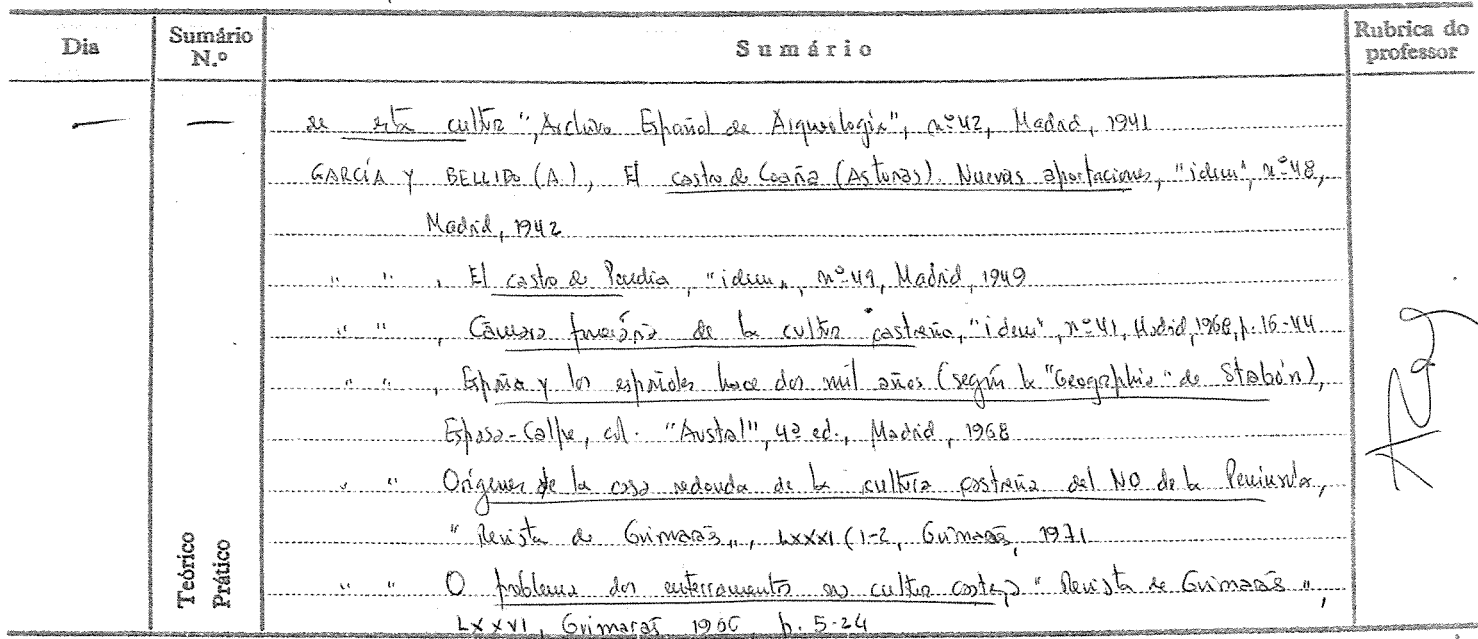 Dia
Sumário N.º
Sumário
Rubrica do professor
— — de esta cultura", Archivo Español de Arqueología", nº 42, Madrid, 1941
GARCÍA Y BELLIDO (A.), El castro de Coaña (Asturias). Nuevas aportaciones, "idem", nº 48,
Madrid, 1942
" " , El castro de Pendia, "idem", nº 49, Madrid, 1949
" " , Cámara funerária de la cultura castreña, "idem", nº 41, Madrid, 1968, p. 16-44
" " , España y los españoles hace dos mil años (según la "Geographia" de Strabón),
Espasa-Calpe, col. "Austral", 4ª ed., Madrid, 1968
" " Orígenes de la casa redonda de la cultura castreña del NO de la Península,
"Revista de Guimarães", LXXXI (1-2, Guimarães, 1971
" " O problema dos enterramentos na cultura casteja "Revista de Guimarães",
LXXVI, Guimarães 1966 p. 5-24
Teórico
Prático